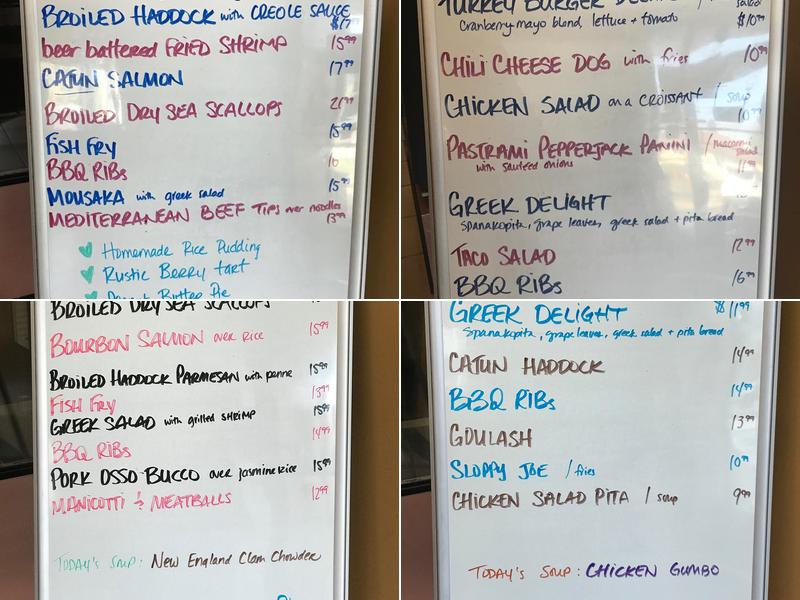 BROILED HADDOCK with CREOLE SAUCE
$17
beer battered FRIED SHRIMP 15.99
CAJUN SALMON 17.99
BROILED DRY SEA SCALLOPS 21.99
FISH FRY 15.99
BBQ RIBS 16
MOUSAKA with greek salad 15.99
MEDITERRANEAN BEEF TIPS over noodles
13.99
Homemade Rice Pudding
Rustic Berry tart
Peanut Butter Pie
TURKEY BURGER
Cranberry mayo blend, lettuce + tomato $10.99
CHILI CHEESE DOG with fries 10.99
CHICKEN SALAD on a CROISSANT / soup
10.99
PASTRAMI PEPPERJACK PANINI / macaroni salad
with sauteed onions 11.99
GREEK DELIGHT
Spanakopita, grape leaves, greek salad + pita bread
TACO SALAD 12.99
BBQ RIBS 16.99
BROILED DRY SEA SCALLOPS
BOURBON SALMON over rice 15.99
BROILED HADDOCK PARMESAN with penne 15.99
FISH FRY 13.99
GREEK SALAD with grilled SHRIMP 15.99
BBQ RIBS 14.99
PORK OSSO BUCCO over jasmine rice 15.99
MANICOTTI & MEATBALLS 12.99
TODAY'S SOUP: New England Clam Chowder
GREEK DELIGHT $11.99
Spanakopita, grape leaves, greek salad + pita bread
CAJUN HADDOCK 14.99
BBQ RIBS 14.99
GOULASH 13.99
SLOPPY JOE / fries 10.99
CHICKEN SALAD PITA / soup 9.99
TODAY'S SOUP: CHICKEN GUMBO